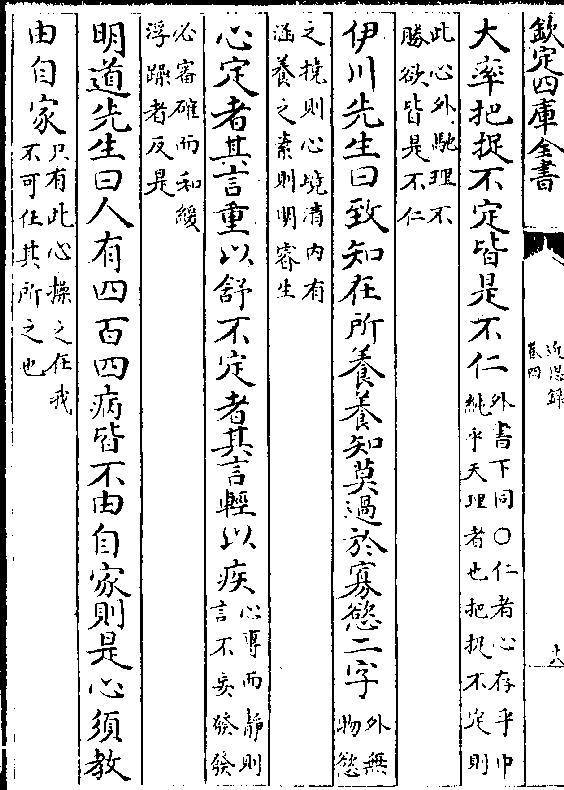 欽定四庫全書
近思録
卷四
十八
大率把捉不定皆是不仁
外書下同○仁者心存乎中
純乎天理者也把捉不定則
此心外馳理不
勝欲皆是不仁
伊川先生曰致知在所養養知莫過於寡慾二字
外無
物慾
之撓則心境清内有
涵養之素則明睿生
心定者其言重以舒不定者其言輕以疾
心專而靜則
言不妄發發
必審確而和緩
浮躁者反是
明道先生曰人有四百四病皆不由自家則是心須教
由自家
只有此心操之在我
不可任其所之也